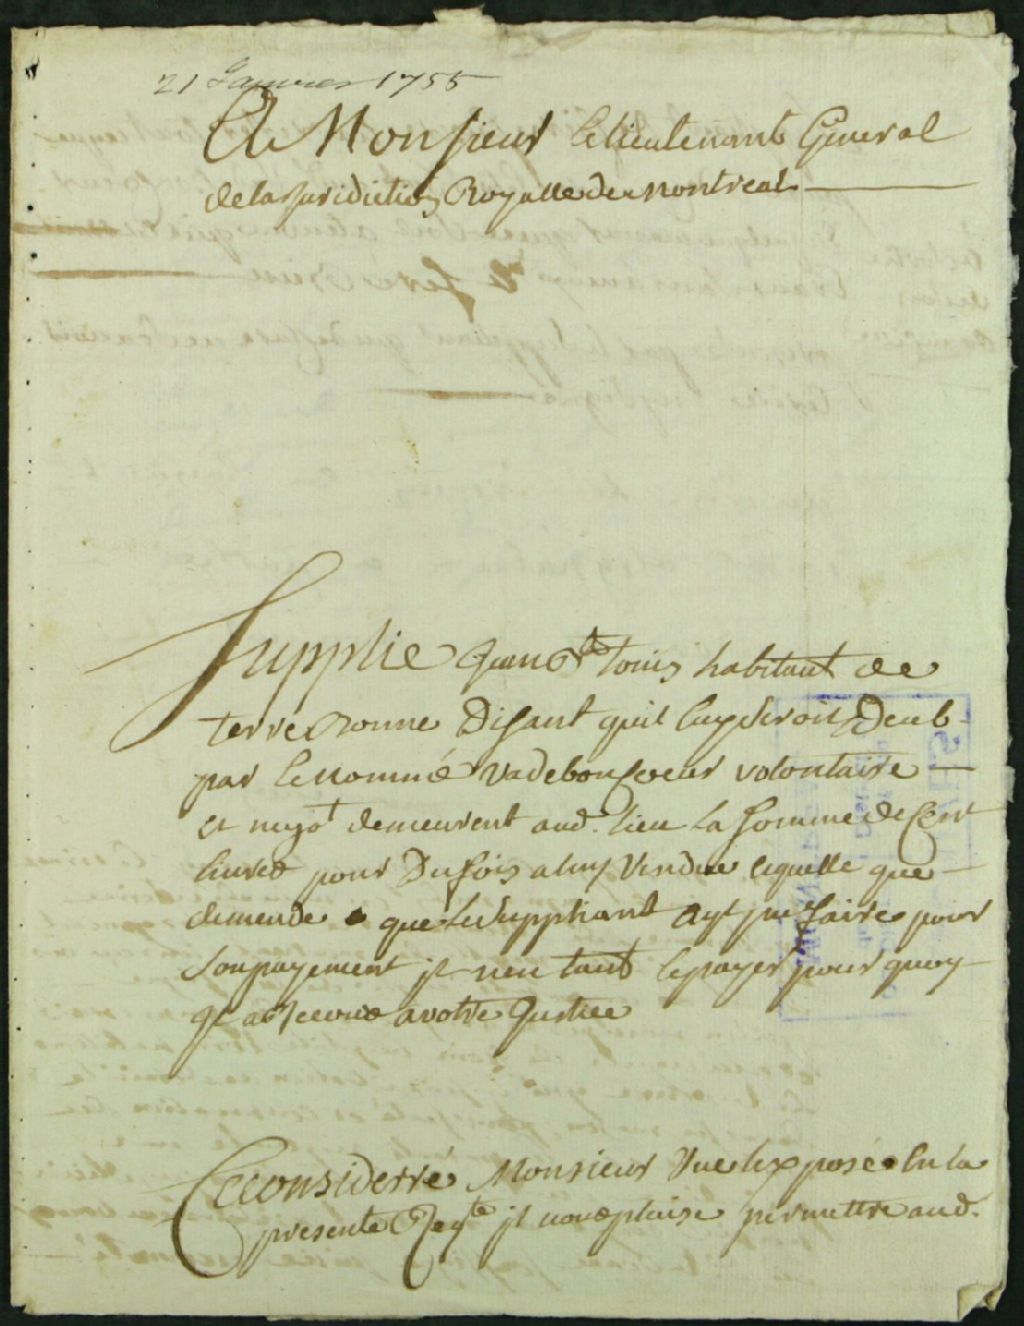 21 Janvier 1755
A Monsieur le lieutenant General
de la Juridiction Royalle de Montreal
Supplie touin habitant de
terrebonne Disant quil luy seroit Deub
par le nommé vadeboncoeur volontaire
et negot demeurent aud. lieu la somme de Cent
livres pour Du fois a luy vendue lequelle que
demende que le suppliant ayt pu faire pour
son payement il neu tant le payer pour quoy
il a recours a votre Justice
Ce considerré Monsieur Vue lexposé en la
presente Reqte il vous plaise permettre aud.